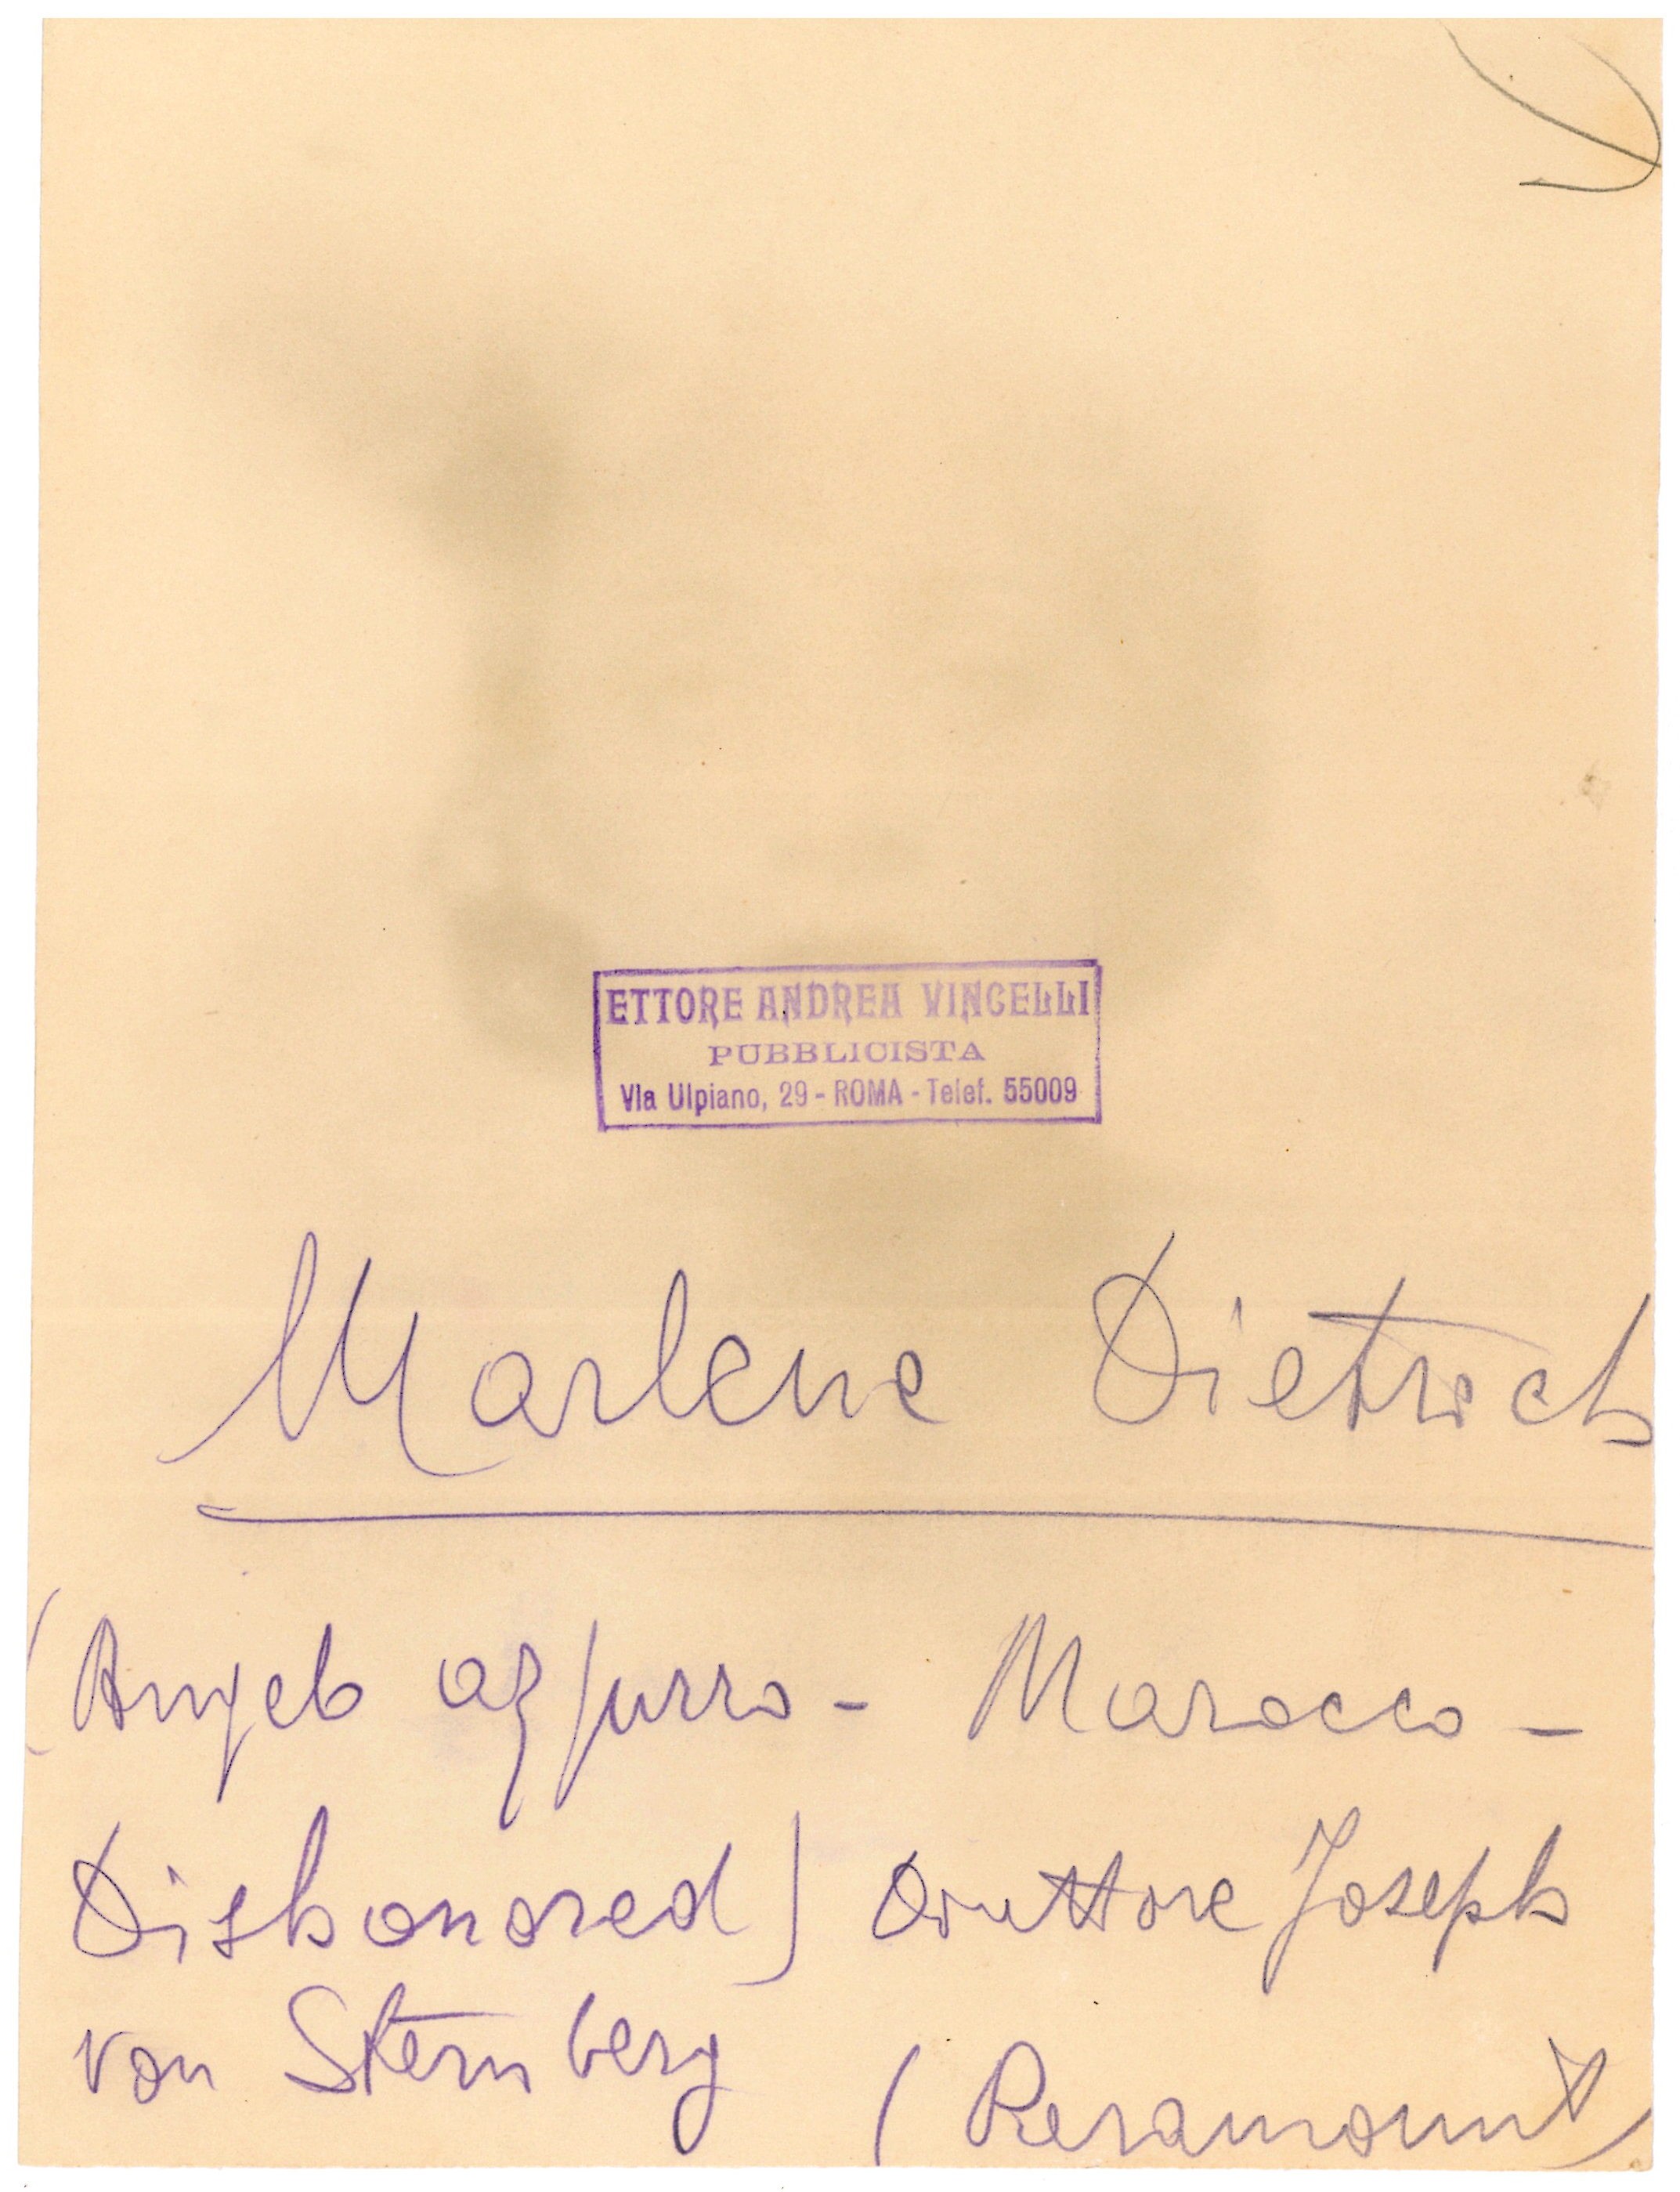 ETTORE ANDREA VINCELLI
PUBBLICISTA
Via Ulpiano, 29 - ROMA - Telef. 55009
Marlene Dietrich
(Angelo azzurro - Marocco -
Dishonored) Direttore Joseph
von Sternberg
(Paramount)